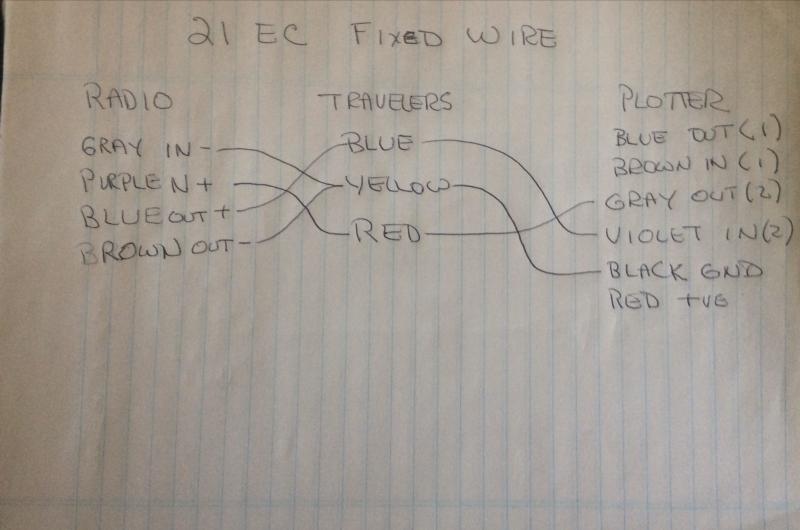 21 EC FIXED WIRE
RADIO
GRAY IN -
PURPLE N +
BLUE OUT +
BROWN OUT -
TRAVELERS
BLUE
YELLOW
RED
PLOTTER
BLUE OUT (1)
BROWN IN (1)
GRAY OUT (2)
VIOLET IN (2)
BLACK GND
RED +VE